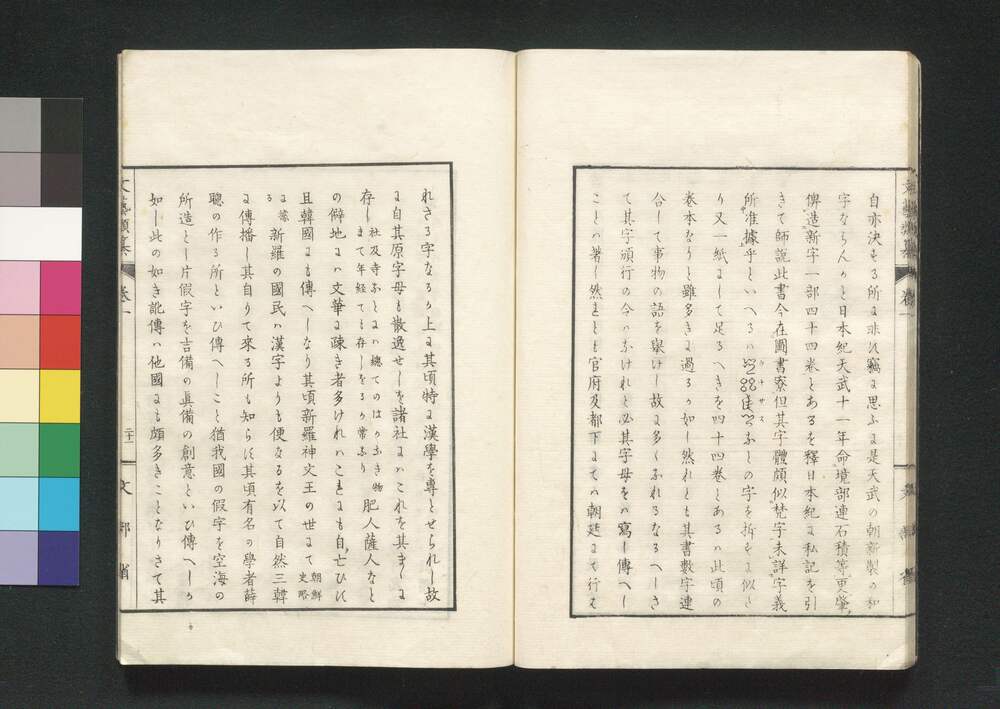 自亦決する所に非ㇾ竊に思ふに是天武の朝新製の和
字ならんかと日本紀天武十一年命境部連石積等更肇
俾造新字一部四十四卷とあるを釋日本紀に私記を引
きて師說此書今在圖書寮但其字體頗似梵字未詳字義
所准據乎といへるハ
カサス
ふとの字を折きに似さ
り又一紙にして足るへきを四十四卷とあるハ此頃の
卷本なりと雖多きに過るか如し然れとも其書數字連
合して事物の語を擧けし故に多くふれるなるへしさ
て其字頭行の今ハふけれと必其字母をハ寫し傳へし
ことハ著し然れとも官府及都下にてハ朝廷にて行は
文藝類纂 卷一
文部省
れさる字なるか上に其頃特に漢學を專とせられし故
に自其原字母も散逸せしを諸社にハこれを其まゝに
存し
社及寺ふとにハ總てのはかふき物
まて年經ても存しをるか常ふり
肥人薩人なと
の僻地にハ文華に疎き者多けれハこれにも自亡ひび
且韓國にも傳へしなり其頃新羅神文王の世にて
朝鮮
史略
に據
る
新羅の國民ハ漢字よりも便なるを以て自然三韓
に傳播し其自りて來る所も知らに其頃有名の學者薛
聰の作る所といひ傳へしこと猶我國の假字を空海の
所造とし片假字を吉備の眞備の創意といひ傳へしか
如し此の如き訛傳ハ他國にも頗多きことなりさて其
文藝類纂 卷一 二十二 文部省